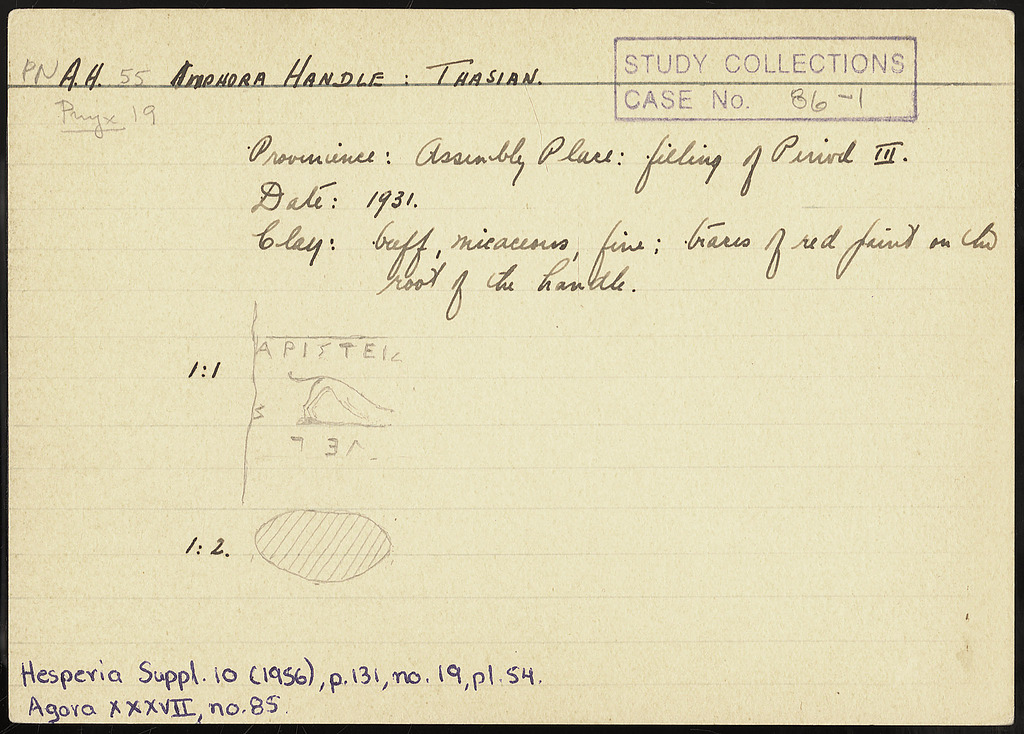 PN A.H. 55 AMPHORA HANDLE : THASIAN.
Pnyx 19
STUDY COLLECTIONS
CASE No. 86-1
Provenience: Assembly Place: filling of Period III.
Date: 1931.
Clay: buff, micaceous, fine; traces of red paint on the
root of the handle.
1:1
ΑΡΙΣΤΕΙ
1:2.
Hesperia Suppl. 10 (1956), p.131, no. 19, pl. 54.
Agora XXXVII, no. 85.